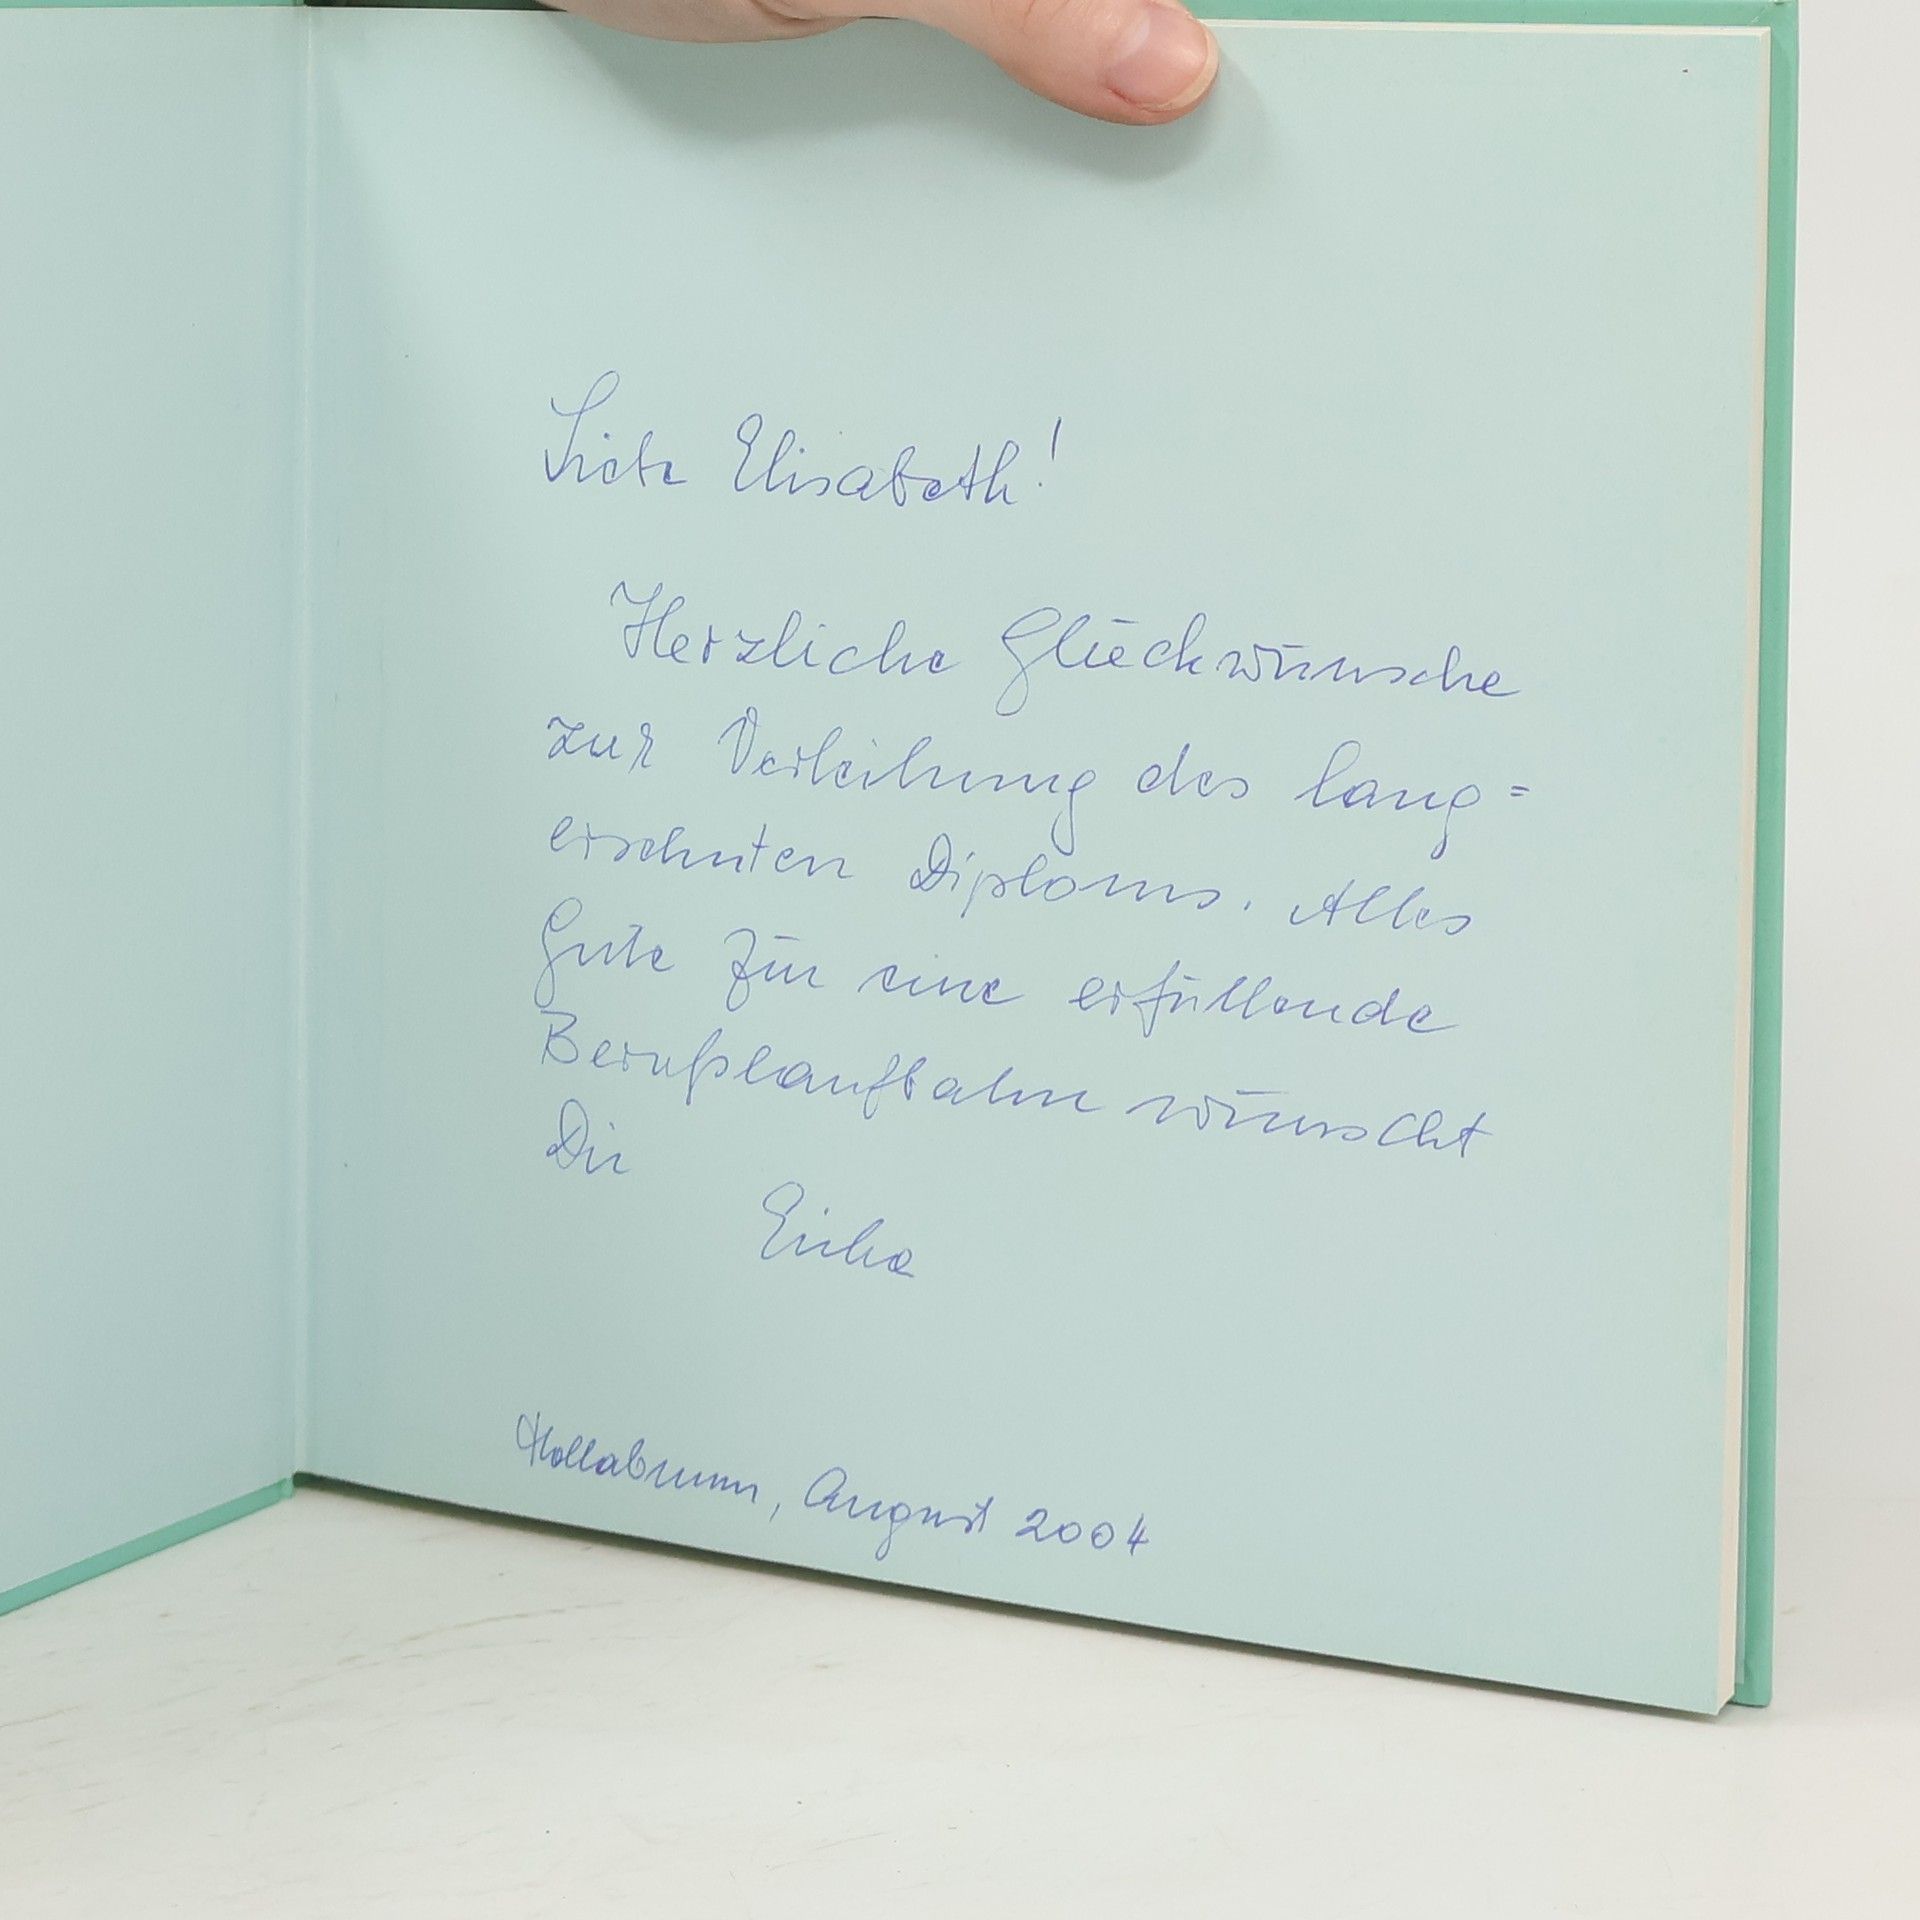 Liebe Elisabeth!
Herzliche Glückwünsche
zur Verleihung des lang=
ersehnten Diploms. Alles
Gute für eine erfüllende
Berufslaufbahn wünscht
Dir
Erika
Hollabrunn, August 2004